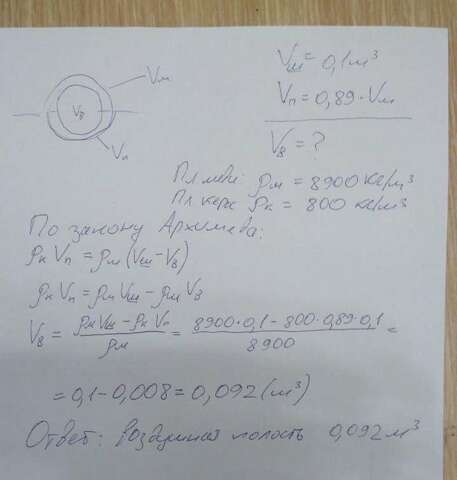 Vм
Vв
Vп
Vш = 0,1 м³
Vп = 0,89 · Vш
Vв = ?
Пл меди: ρм = 8900 кг/м³
Пл керос ρк = 800 кг/м³
По закону Архимеда:
ρк Vп = ρм (Vш – Vв)
ρк Vп = ρм Vш – ρм Vв
Vв = (ρм Vш – ρк Vп) / ρм = (8900·0,1 – 800·0,89·0,1) / 8900 =
= 0,1 – 0,008 = 0,092 (м³)
Ответ: воздушная полость 0,092 м³